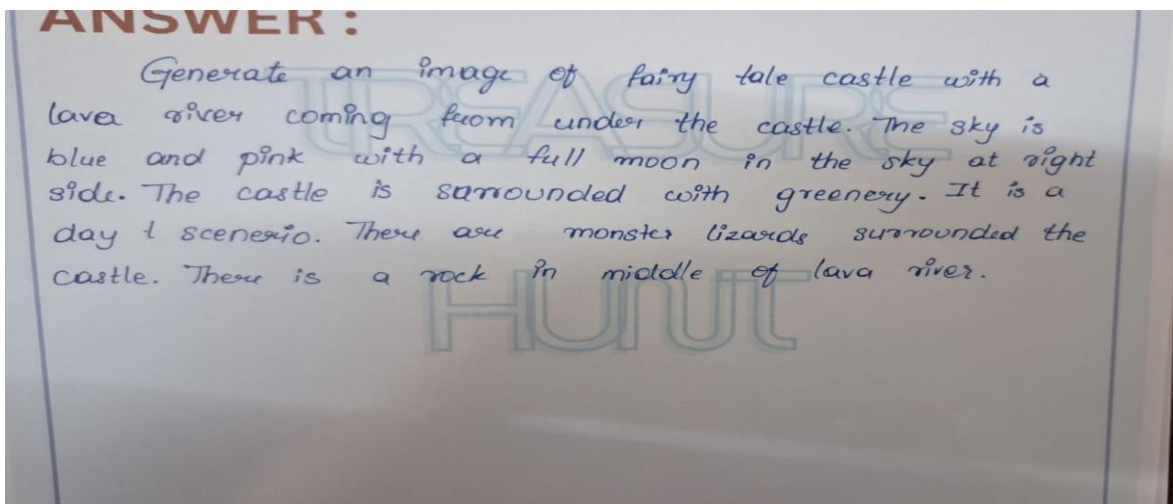 ANSWER :
Generate an image of fairy tale castle with a
lava river coming from under the castle. The sky is
blue and pink with a full moon in the sky at right
side. The castle is sarrounded with greenery. It is a
day t scenerio. There are monster lizards surrounded the
castle. There is a rock in middle of lava river.
TREASURE
HUNT